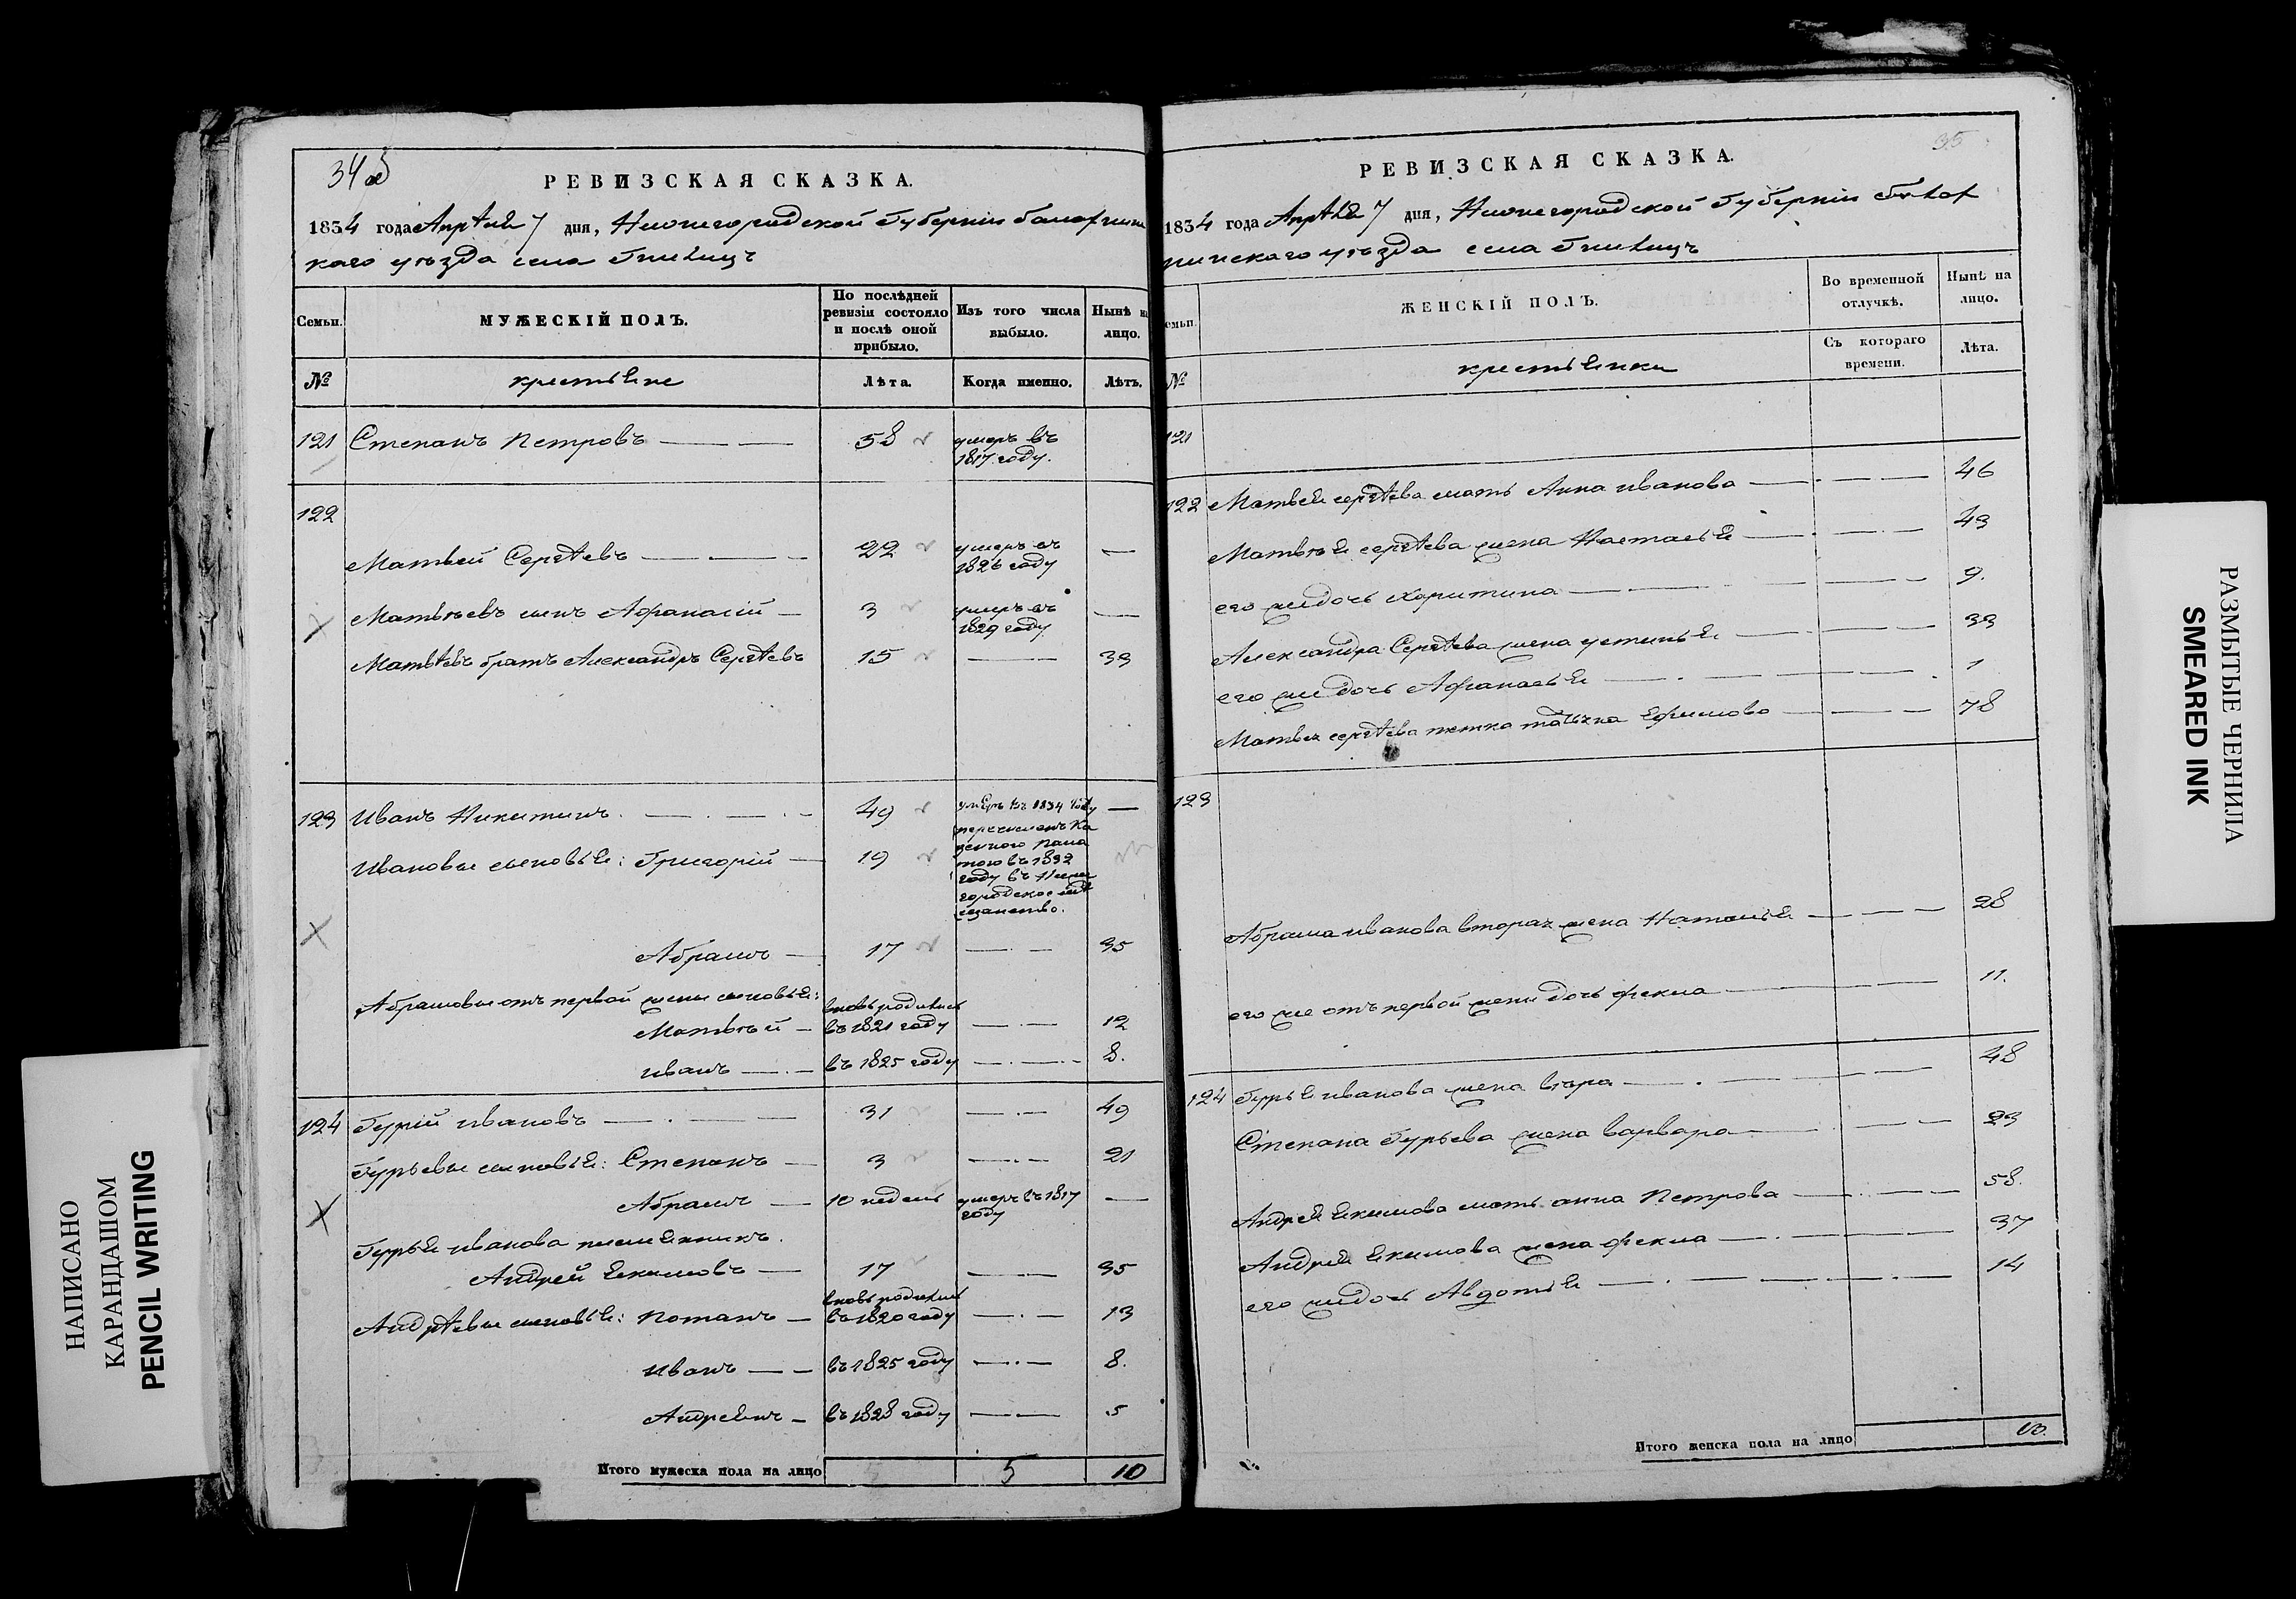 34 об
РЕВИЗСКАЯ СКАЗКА.
1834 года Апрѣля 7 дня, Нижегородской Губерніи Балахнин
каго уѣзда села Гнилицъ
Семьи.
МУЖЕСКІЙ ПОЛЪ.
По послѣдней
ревизіи состояло
и послѣ оной
прибыло.
Изъ того числа
выбыло.
Нынѣ на
лицо.
№
крестьяне
Лѣта.
Когда именно.
Лѣтъ.
121 Степанъ Петровъ — — 58 умеръ въ
1817 году.
122
Матвей Сергѣевъ — — 22 умеръ въ —
1826 году
Матвѣевъ сынъ Афанасій — 3 умеръ въ —
1829 году
Матвѣевъ братъ Александръ Сергѣевъ 15 — 33
123 Иванъ Никитинъ — — 49 умеръ въ 1834 году —
Ивановы сыновья: Григорій — 19 перечисленъ Ка
зенного пала
тою въ 1832
году въ Ниже
городское мѣ
щанство.
Абрамъ — 17 — — 35
Абрамовы отъ первой жены сыновья:
вновь родились
Матвѣй — въ 1821 году — — 12
Иванъ — — въ 1825 году — — 8.
124 Гурій Ивановъ — — 31 — — 49
Гурьевы сыновья: Степанъ — 3 — — 21
Абрамъ — 10 недель умеръ въ 1817 —
году
Гурья Иванова племянникъ.
Андрей Екимовъ — 17 — — 35
вновь родились
Андрѣевы сыновья: Потапъ — въ 1820 году — — 13
Иванъ — — въ 1825 году — — 8.
Андреянъ — въ 1828 году — — 5
Итого мужеска пола на лицо 5 10
35
РЕВИЗСКАЯ СКАЗКА.
1834 года Апрѣля 7 дня, Нижегородской Губерніи Балах
нинскаго уѣзда села Гнилицъ
Семьи.
ЖЕНСКІЙ ПОЛЪ.
Во временной
отлучкѣ.
Нынѣ на
лицо.
№
крестьянки
Съ котораго
времени.
Лѣта.
121
122 Матвея Сергѣева мать Анна Иванова — — 46
Матвѣя Сергѣева жена Настасья — — 43
его же дочь Харитина — — 9.
Александра Сергѣева жена Устинья — — 33
его же дочь Афанасья — — 1
Матвея Сергѣева тетка Татьяна Ефимова — — 78
123
Абрама Иванова вторая жена Наталья — — 28
его же отъ первой жены дочь Фекла — — 11.
124 Гурья Иванова жена Вѣра — — 48
Степана Гурьева жена Варвара — — 23
Андрея Екимова мать Анна Петрова — — 58.
Андрея Екимова жена Фекла — — 37
его же дочь Авдотья — — 14
Итого женска пола на лицо 13.
НАПИСАНО
КАРАНДАШОМ
PENCIL WRITING
РАЗМЫТЫЕ ЧЕРНИЛА
SMEARED INK